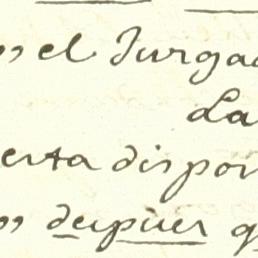 ” el Jurga
La
erta dispon
” despues q